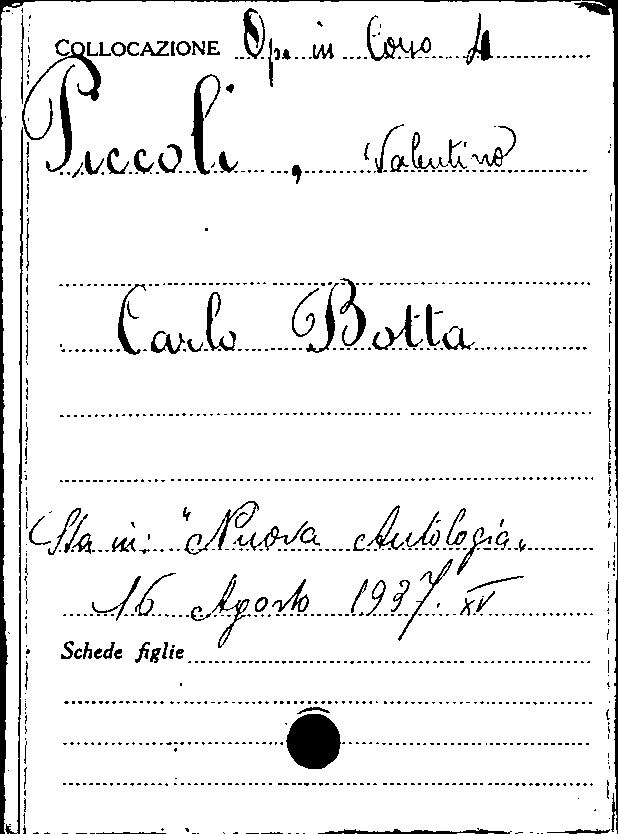 COLLOCAZIONE Op. in Corso 4
Piccoli, Valentino
Carlo Botta
Sta in: "Nuova Antologia„
16 Agosto 1937. XV
Schede figlie